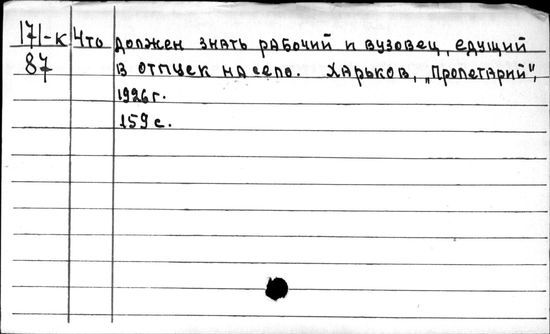 171-к Что должен знать рабочий и вузовец, едущий
87 в отпуск на село. Харьков, „Пролетарий",
1926 г.
159 с.